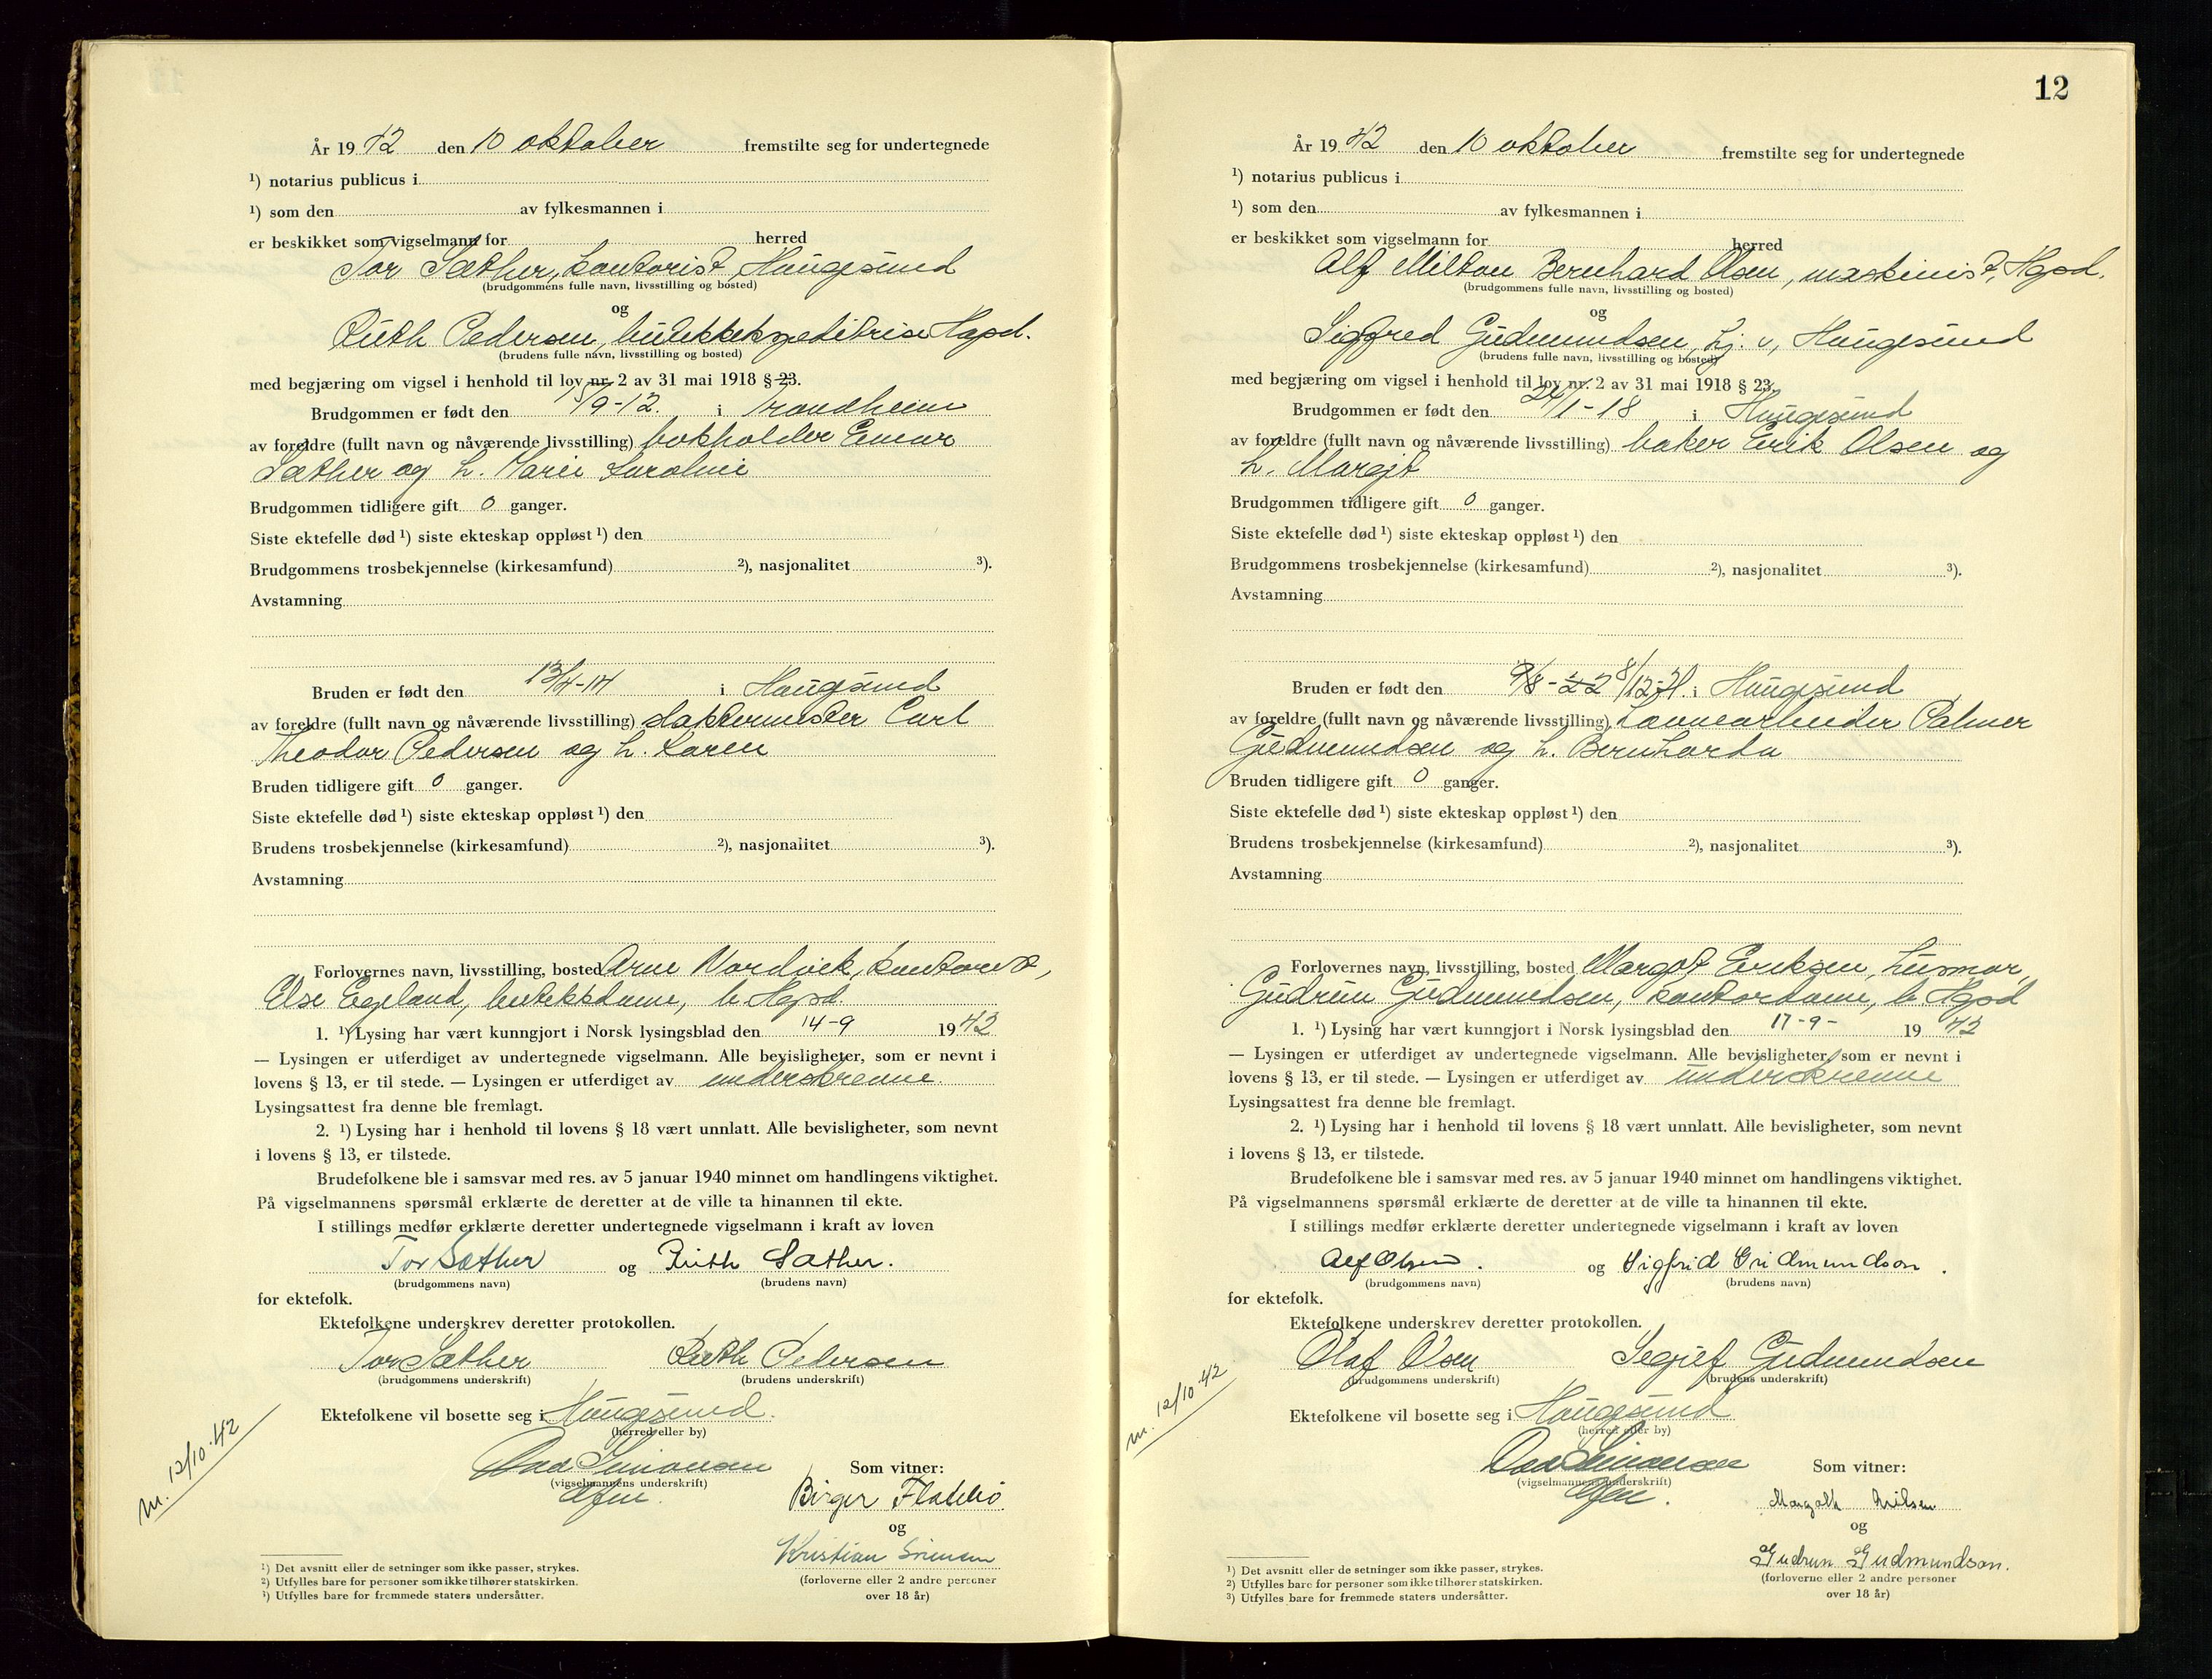 År 1942 den 10 oktober fremstilte seg for undertegnede
¹) notarius publicus i
¹) som den av fylkesmannen i
er beskikket som vigselmann for herred
Tor Sæther, kontorist, Haugesund
(brudgommens fulle navn, livsstilling og bosted)
og
Ruth Pedersen, butikkekspeditrise Hgsd.
(brudens fulle navn, livsstilling og bosted)
med begjæring om vigsel i henhold til lov nr. 2 av 31 mai 1918 § 23.
Brudgommen er født den /9-12. i Trondheim
av foreldre (fullt navn og nåværende livsstilling) bokholder Einar
Sæther og h. Marie Karoline
Brudgommen tidligere gift 0 ganger.
Siste ektefelle død ¹) siste ekteskap oppløst ¹) den
Brudgommens trosbekjennelse (kirkesamfund) ²), nasjonalitet ³).
Avstamning
Bruden er født den 13/4-14 i Haugesund
av foreldre (fullt navn og nåværende livsstilling) slaktermester Carl
Theodor Pedersen og h. Karen
Bruden tidligere gift 0 ganger.
Siste ektefelle død ¹) siste ekteskap oppløst ¹) den
Brudens trosbekjennelse (kirkesamfund) ²), nasjonalitet ³).
Avstamning
Forlovernes navn, livsstilling, bosted Arne Nordvik, kontorist,
Else Egeland, butikkdame, b. Hgsd.
1. ¹) Lysing har vært kunngjort i Norsk lysingsblad den 14-9 1942
— Lysingen er utferdiget av undertegnede vigselmann. Alle bevisligheter, som er nevnt i
lovens § 13, er til stede. — Lysingen er utferdiget av underskrevne.
Lysingsattest fra denne ble fremlagt.
2. ¹) Lysing har i henhold til lovens § 18 vært unnlatt. Alle bevisligheter, som nevnt
i lovens § 13, er tilstede.
Brudefolkene ble i samsvar med res. av 5 januar 1940 minnet om handlingens viktighet.
På vigselmannens spørsmål erklærte de deretter at de ville ta hinannen til ekte.
I stillings medfør erklærte deretter undertegnede vigselmann i kraft av loven
Tor Sæther og Ruth Sæther.
(brudgommens navn) (brudens navn)
for ektefolk.
Ektefolkene underskrev deretter protokollen.
Tor Sæther Ruth Pedersen
(brudgommens underskrift) (brudens underskrift)
Ektefolkene vil bosette seg i Haugesund.
(herred eller by)
m. 12/10.42
Simonsen
(vigselmannens underskrift)
Som vitner:
Birger
og
Kristian
(forloverne eller 2 andre personer
over 18 år)
¹) Det avsnitt eller de setninger som ikke passer, strykes.
²) Utfylles bare for personer som ikke tilhører statskirken.
³) Utfylles bare for fremmede staters undersåtter.
12
År 1942 den 10 oktober fremstilte seg for undertegnede
¹) notarius publicus i
¹) som den av fylkesmannen i
er beskikket som vigselmann for herred
Alf Milton Bernhard Olsen, maskinist, Hgsd.
(brudgommens fulle navn, livsstilling og bosted)
og
Sigfred Gudmundsen, hj. v, Haugesund
(brudens fulle navn, livsstilling og bosted)
med begjæring om vigsel i henhold til lov nr. 2 av 31 mai 1918 § 23.
Brudgommen er født den 24/1-18 i Haugesund
av foreldre (fullt navn og nåværende livsstilling) baker Erik Olsen og
h. Margit
Brudgommen tidligere gift 0 ganger.
Siste ektefelle død ¹) siste ekteskap oppløst ¹) den
Brudgommens trosbekjennelse (kirkesamfund) ²), nasjonalitet ³).
Avstamning
Bruden er født den 8/12-21. i Haugesund
av foreldre (fullt navn og nåværende livsstilling) tønnearbeider Palmer
Gudmundsen og h. Bernharda
Bruden tidligere gift 0 ganger.
Siste ektefelle død ¹) siste ekteskap oppløst ¹) den
Brudens trosbekjennelse (kirkesamfund) ²), nasjonalitet ³).
Avstamning
Forlovernes navn, livsstilling, bosted Margot Eriksen, husmor,
Gudrun Gudmundsen, kontordame, b. Hgsd
1. ¹) Lysing har vært kunngjort i Norsk lysingsblad den 17-9- 1942
— Lysingen er utferdiget av undertegnede vigselmann. Alle bevisligheter, som er nevnt i
lovens § 13, er til stede. — Lysingen er utferdiget av underskrevne
Lysingsattest fra denne ble fremlagt.
2. ¹) Lysing har i henhold til lovens § 18 vært unnlatt. Alle bevisligheter, som nevnt
i lovens § 13, er tilstede.
Brudefolkene ble i samsvar med res. av 5 januar 1940 minnet om handlingens viktighet.
På vigselmannens spørsmål erklærte de deretter at de ville ta hinannen til ekte.
I stillings medfør erklærte deretter undertegnede vigselmann i kraft av loven
Alf Olsen. og Sigfrid Gudmundson.
(brudgommens navn) (brudens navn)
for ektefolk.
Ektefolkene underskrev deretter protokollen.
Olaf Olsen Segrief Gudmundsen
(brudgommens underskrift) (brudens underskrift)
Ektefolkene vil bosette seg i Haugesund
(herred eller by)
m. 12/10.42
Simonsen
(vigselmannens underskrift)
Som vitner:
og
Gudrun Gudmundson.
(forloverne eller 2 andre personer
over 18 år)
¹) Det avsnitt eller de setninger som ikke passer, strykes.
²) Utfylles bare for personer som ikke tilhører statskirken.
³) Utfylles bare for fremmede staters undersåtter.